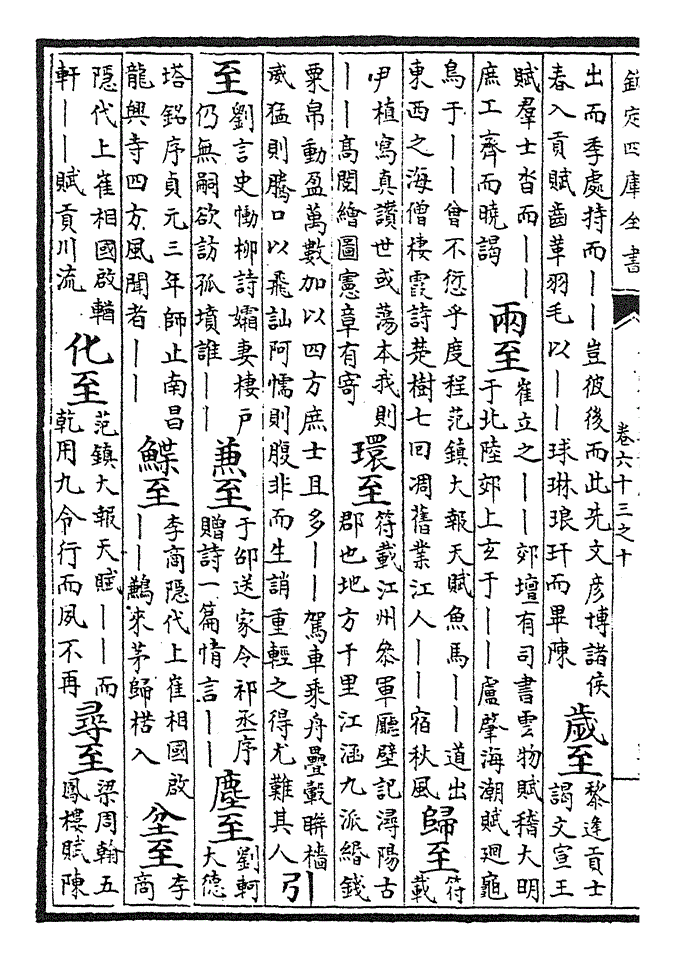 欽定四庫全書
卷六十三之十
出而季處持而——豈彼後而此先文彦博諸侯
春入貢賦齒革羽毛以——球琳琅玕而畢陳
歲至
黎逢貢士
謁文宣王
賦羣士沓而——
庶工齊而曉謁
兩至
崔立之——郊壇有司書雲物賦稽大明
于北陸郊上玄于——盧肇海潮賦廻龜
鳥于——曾不愆乎度程范鎮大報天賦魚馬——道出
東西之海僧棲霞詩楚樹七回凋舊業江人——宿秋風
歸至
符
載
伊植寫真讚世或蕩本我則
——髙閎繪圖憲章有寄
環至
符載江州叅軍廳壁記潯陽古
郡也地方千里江涵九派緡錢
粟帛動盈萬數加以四方庶士且多——駕車乗舟疊轂聨檣
威猛則騰口以飛訕阿懦則腹非而生誚重輕之得尤難其人
引
至
劉言史慟柳詩孀妻棲戸
仍無嗣欲訪孤墳誰——
兼至
于邵送家令祁丞序
贈詩一篇情言——
塵至
劉軻
大德
塔銘序貞元三年師止南昌
龍興寺四方風聞者——
鰈至
李商隠代上崔相國啟
——鶼來茅歸楛入
坌至
李
商
隠代上崔相國啟輶
軒——賦貢川流
化至
范鎮大報天賦——而
乾用九令行而夙不再
尋至
梁周翰五
鳳樓賦陳